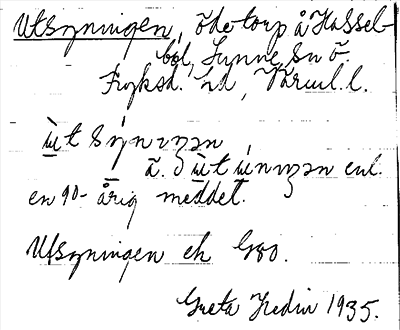 Utsyningen, ödetorp å Hassel-
bol, Sunne sn ö.
Fryksd. hd, Värml. l.
ùt sýnıŋən
ä.
enl.
en 90-årig meddel.
Utsyningen ek G80.
Greta Hedin 1935.